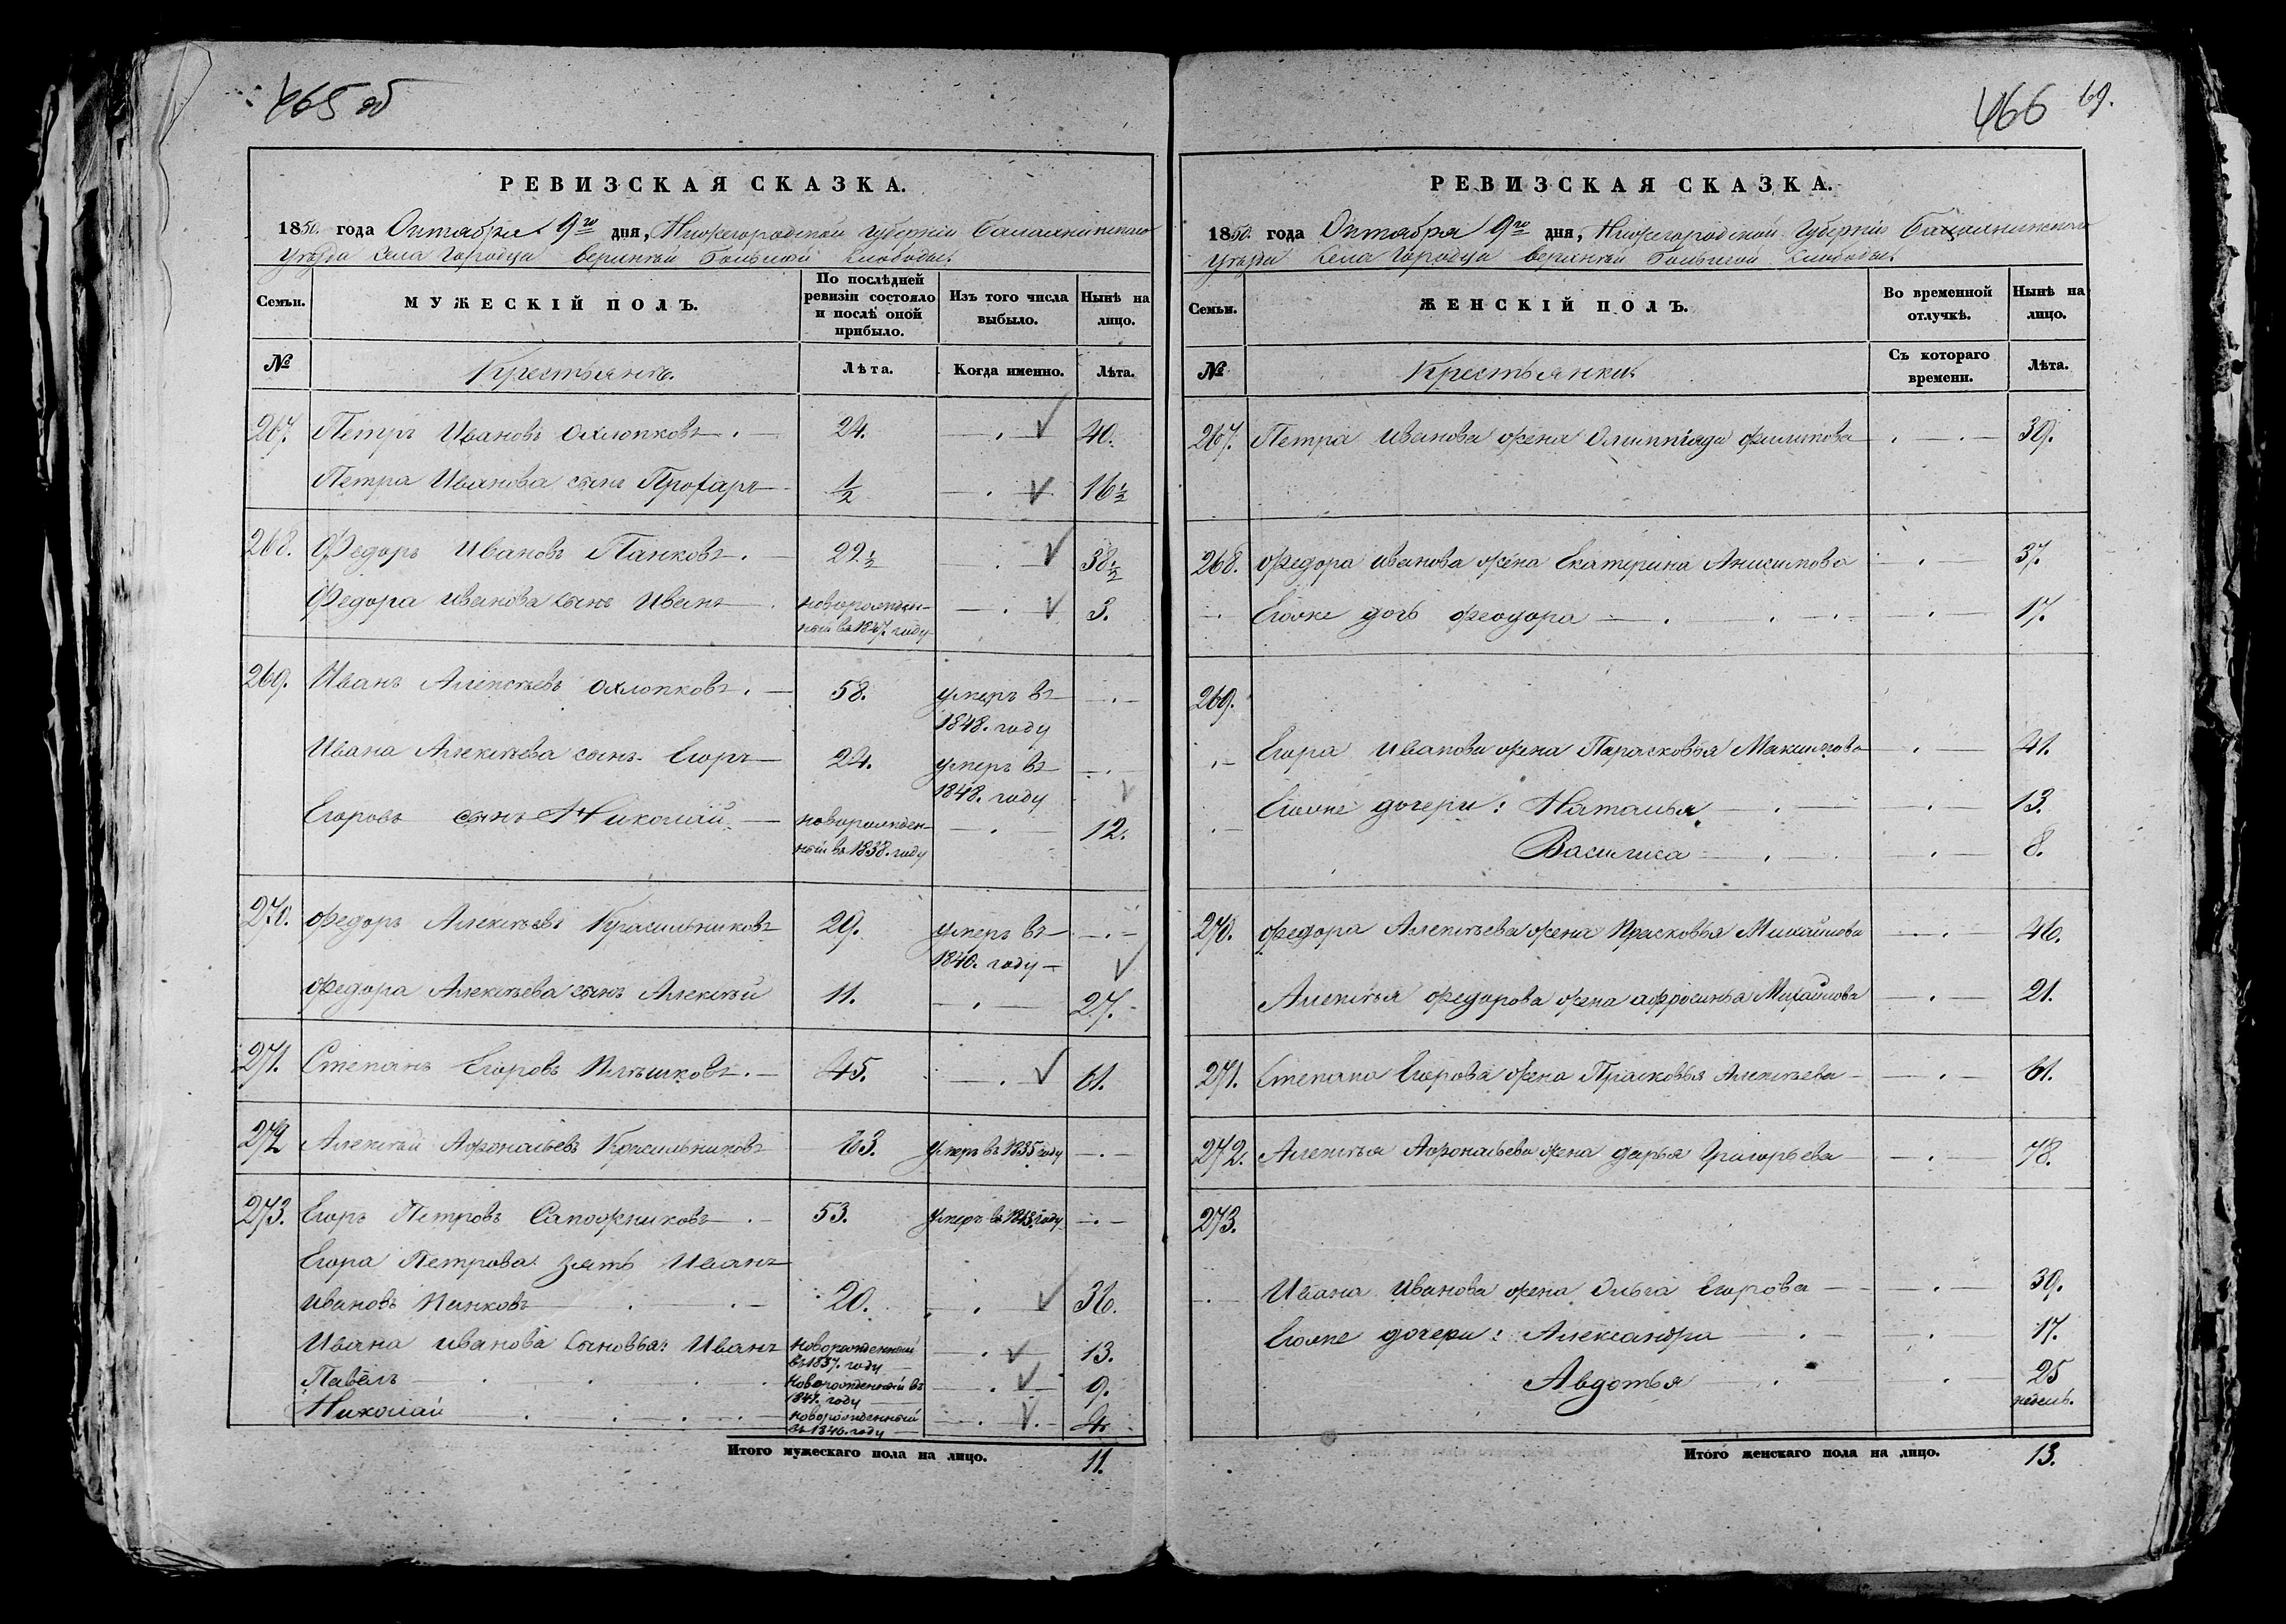 465 об
РЕВИЗСКАЯ СКАЗКА.
1850. года Октября 9го дня, Нижегородской губернии Балахнинского
уезда села Городца верхней Большой слободы.
Семьи.
МУЖЕСКІЙ ПОЛЪ.
По послѣдней ревизіи состояло и послѣ оной прибыло.
Изъ того числа выбыло.
Нынѣ на лицо.
№
Крестьяне.
Лѣта.
Когда именно.
Лѣта.
267. Петръ Ивановъ Охлопковъ 24. 40.
Петра Иванова сынъ Прохаръ 1/2 16 1/2
268. Федоръ Ивановъ Панковъ 22 1/2 38 1/2
Федора Иванова сынъ Иванъ новорожден- 3.
ный въ 1847. году
269. Иванъ Алексѣевъ Охлопковъ 58. умеръ въ
1848. году
Ивана Алексѣева сынъ Егоръ 24. умеръ въ
1848. году
Егоровъ сынъ Николай новорожден- 12.
ный въ 1838. году
270. Федоръ Алексѣевъ Красильниковъ 29. умеръ въ
1840. году
Федора Алексѣева сынъ Алексѣй 11. 27.
271. Степанъ Егоровъ Плѣшковъ 45. 61.
272 Алексѣй Афонасьевъ Красильниковъ 63. умеръ въ 1835 году
273. Егоръ Петровъ Сапожниковъ 53. умеръ въ 1843. году
Егора Петрова зять Иванъ
Ивановъ Панковъ 20. 36.
Ивана Иванова сыновья: Иванъ новорожденный 13.
въ 1837. году
Павелъ новорожденный въ 9.
1841. году
Николай новорожденный 4.
въ 1846. году
Итого мужескаго пола на лицо. 11.
466 69.
РЕВИЗСКАЯ СКАЗКА.
1850. года Октября 9го дня, Нижегородской Губерніи Балахнинского
уезда села Городца верхней Большой слободы
Семьи.
ЖЕНСКІЙ ПОЛЪ.
Во временной отлучкѣ.
Нынѣ на лицо.
№
Крестьянки.
Съ котораго времени.
Лѣта.
267. Петра Иванова жена Олимпіяда Филипова 39.
268. Федора Иванова жена Екатерина Анисимова 37.
Егоже дочь Феодора 17.
269.
Егора Иванова жена Парасковья Максимова 41.
Егоже дочери: Наталья 13.
Василиса 8.
270. Федора Алексѣева жена Прасковья Михайлова 46.
Алексѣя Федорова жена Афросинья Михайлова 21.
271. Степана Егорова жена Прасковья Алексѣева 61.
272. Алексѣя Афонасьева жена Дарья Григорьева 78.
273.
Ивана Иванова жена Ольга Егорова 39.
Егоже дочери: Александра 17.
Авдотья 25
недель.
Итого женскаго пола на лицо. 13.